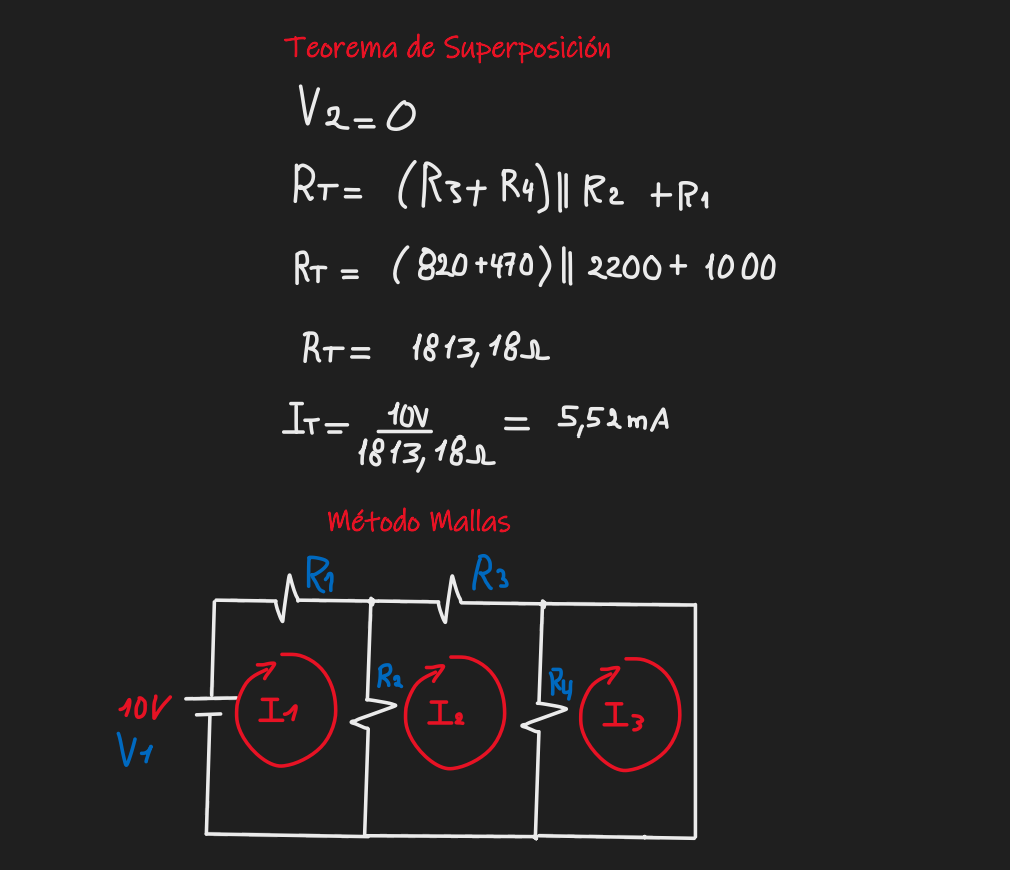 Teorema de Superposición
V2 = 0
RT = (R3 + R4) || R2 + R1
RT = (820 + 470) || 2200 + 1000
RT = 1813,18Ω
IT = 10V / 1813,18Ω = 5,52mA
Método Mallas
R1 R3
R2 R4
10V I1 I2 I3
V1